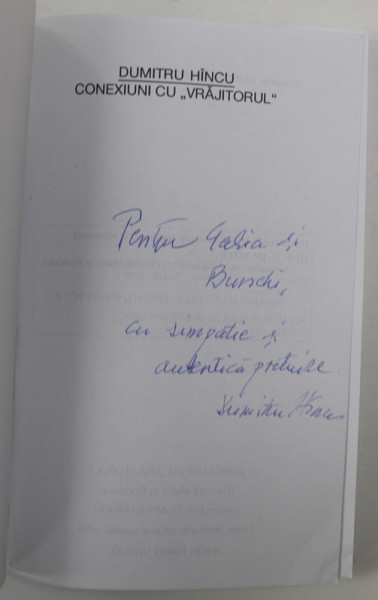 DUMITRU HÎNCU
CONEXIUNI CU „VRĂJITORUL“
Pentru și
Burschi,
cu simpatie și
autentică prețuire.
Dumitru Hîncu